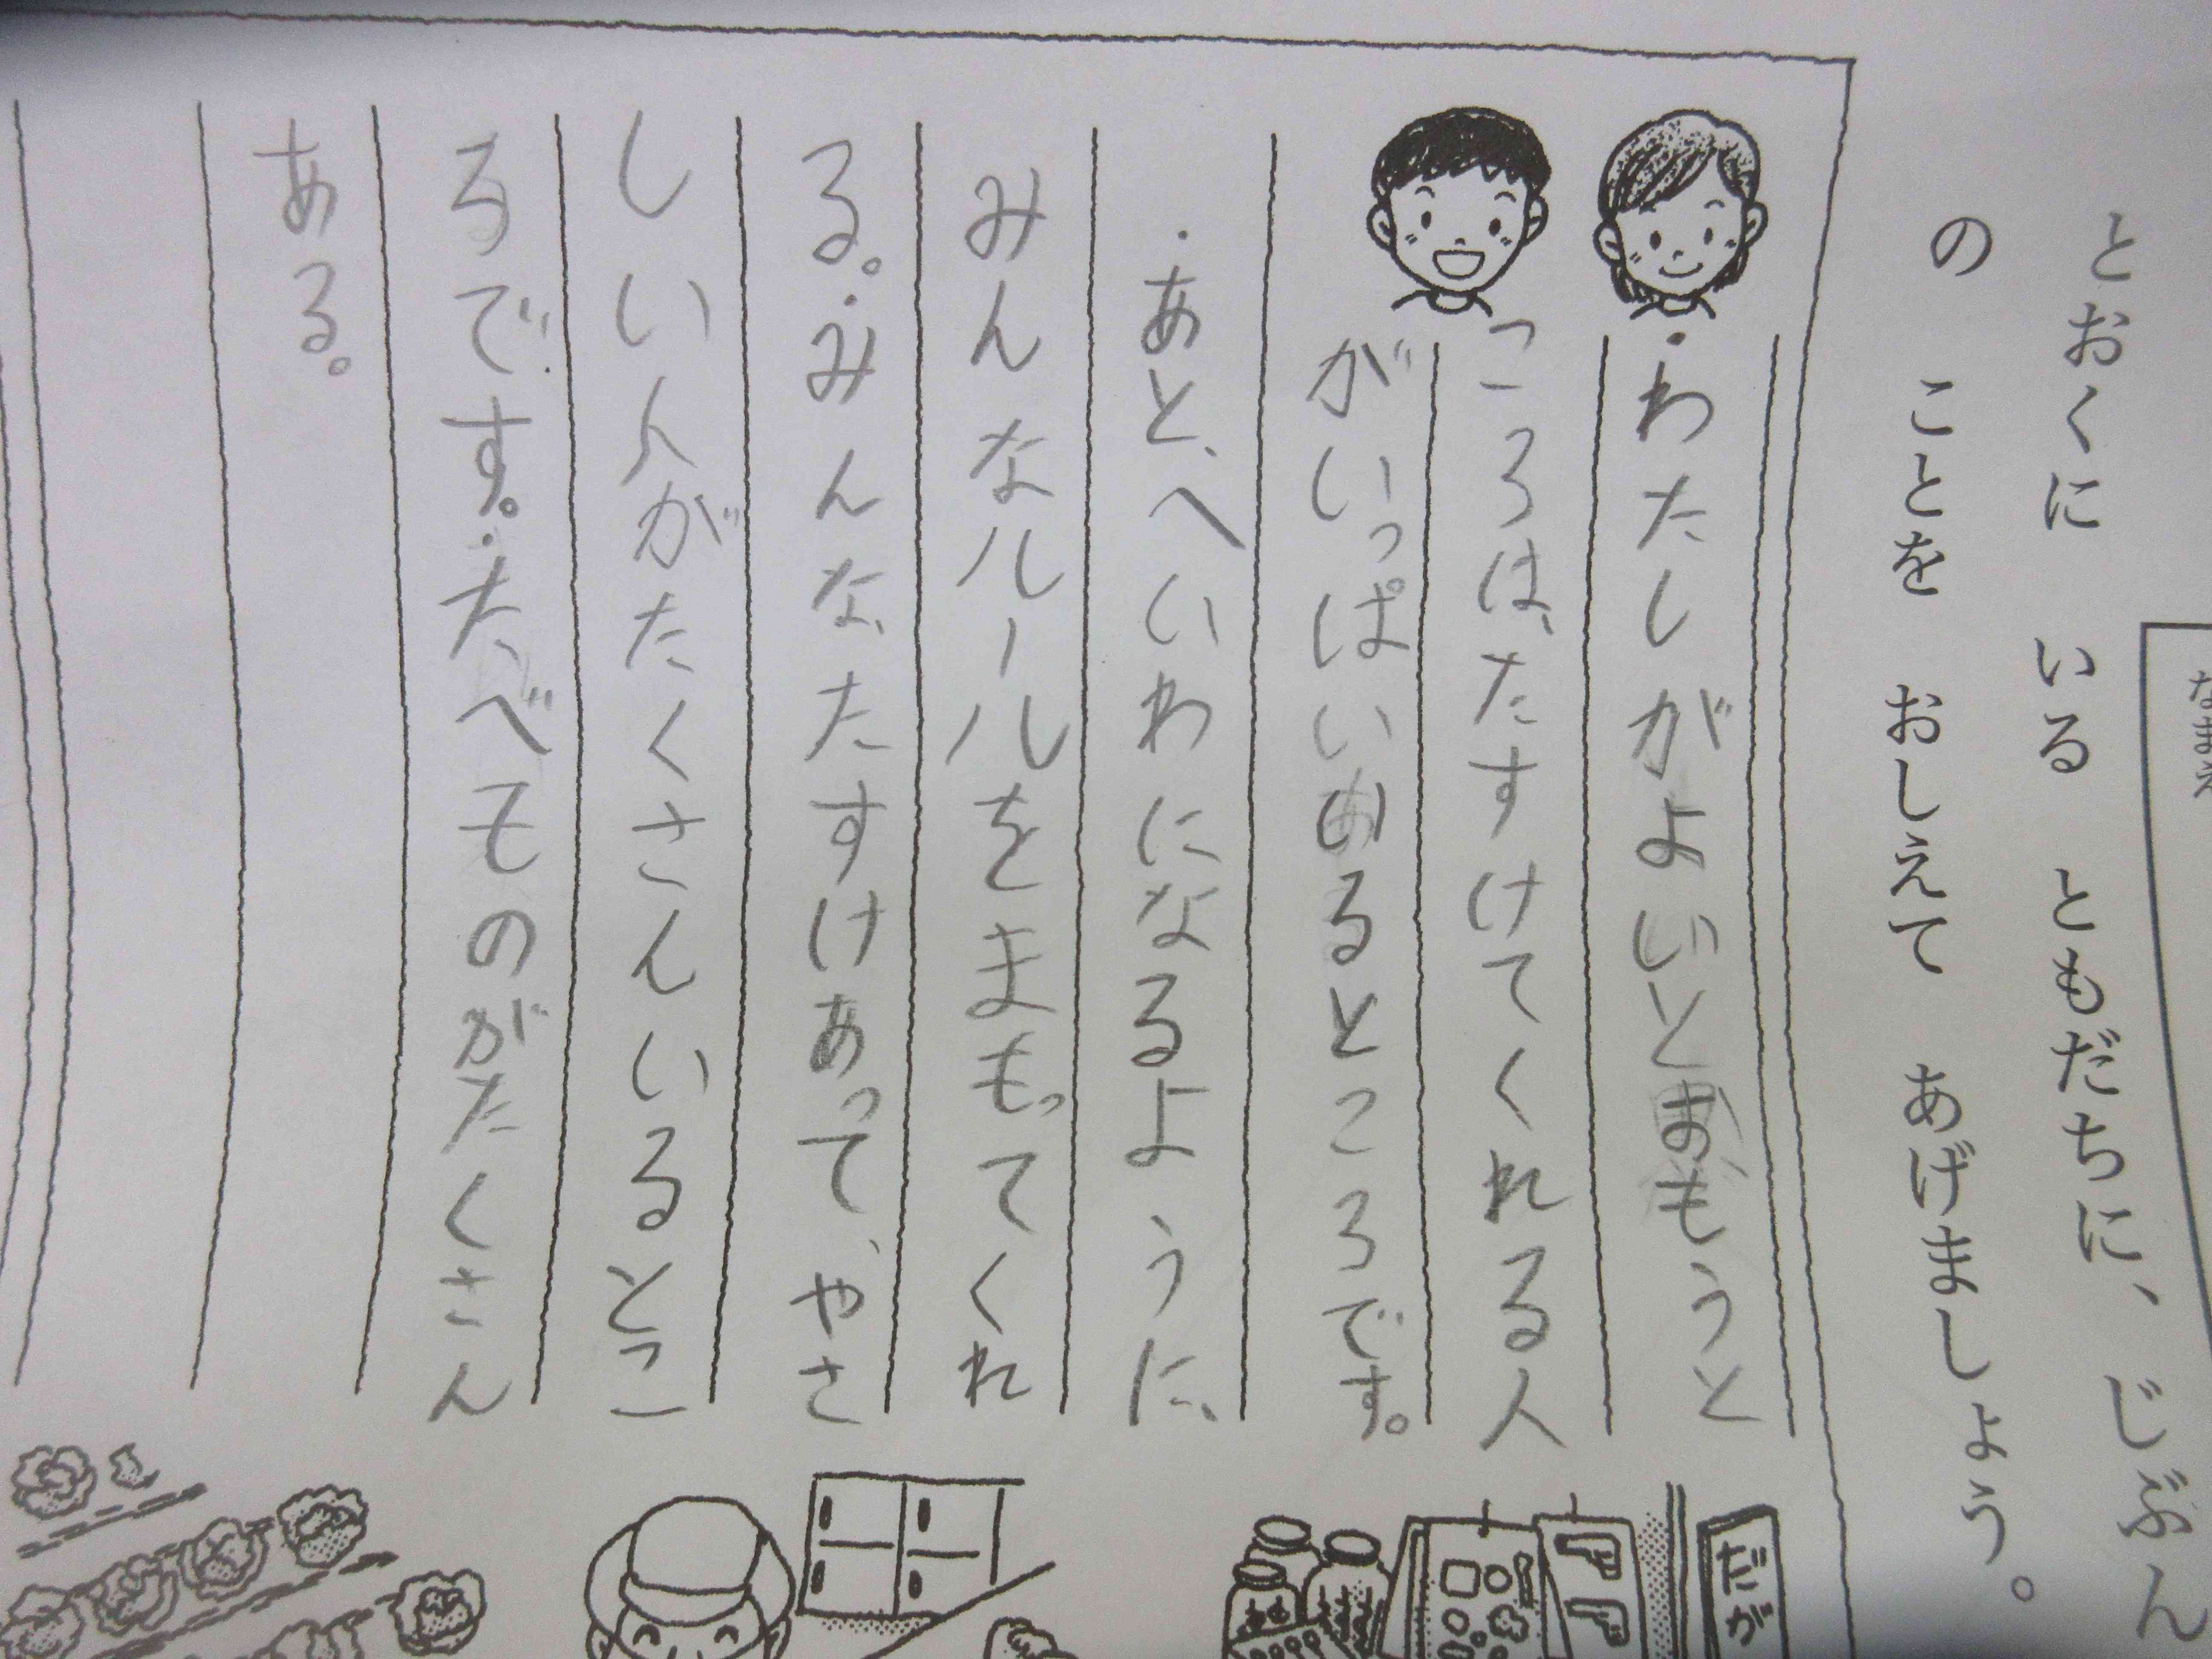 なまえ
とおくに いる ともだちに、じぶん
の ことを おしえて あげましょう。
・わたしがよいとおもうと
ころは、たすけてくれる人
がいっぱいいるところです。
・あと、へいわになるように、
みんなルールをまもってくれ
る。・みんなたすけあって、やさ
しい人がたくさんいるとこ
ろです。・たべものがたくさん
ある。
だが